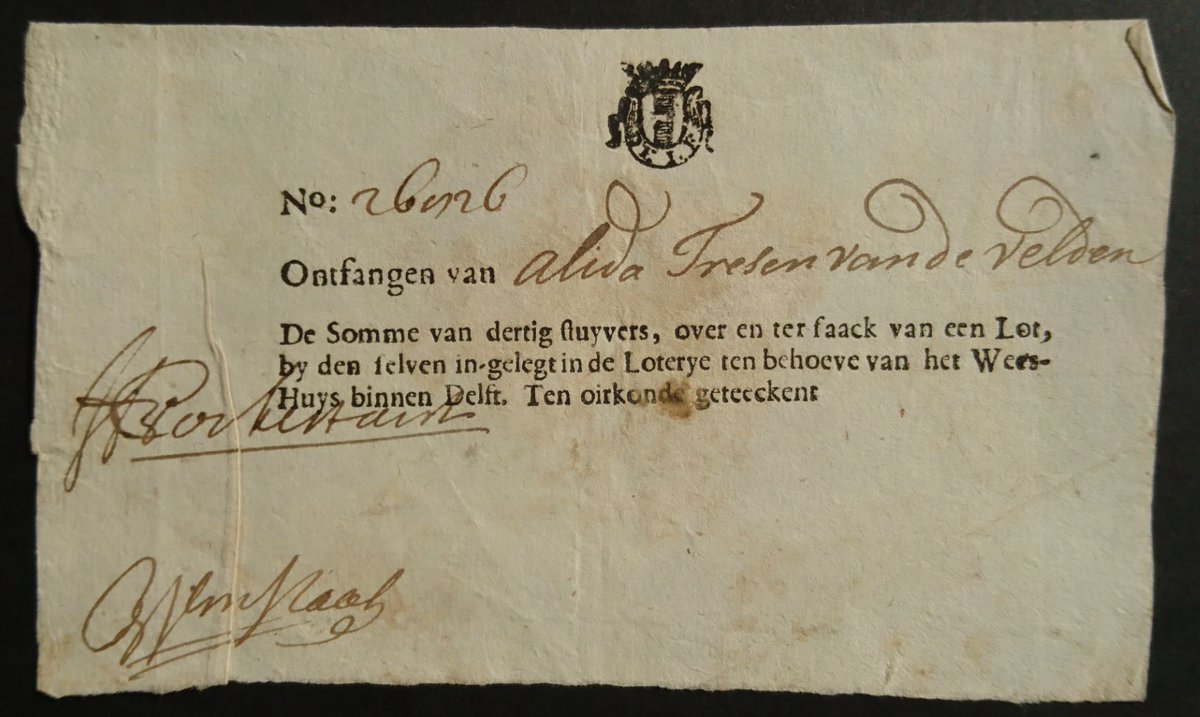 No: 26126
Ontfangen van alida Tresen van de velden
De Somme van dertig stuyvers, over en ter saack van een Lot,
by den selven in-gelegt in de Loterye ten behoeve van het Wees-
Huys binnen Delft. Ten oirkonde geteeckent